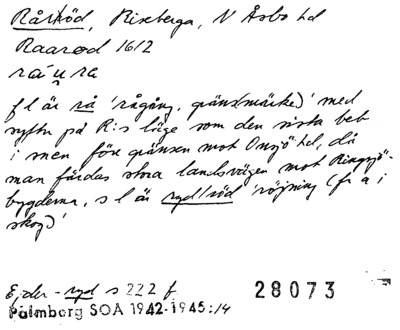 Råröd, Riseberga, N Åsbo hd
Raarød 1612
rá u ra
f l är rå 'rågång, gränsmärke)' med
syftn på R:s läge som den sista beb
i men före gränsen mot Onsjö hd, då
man färdas stora landsvägen mot Ringsjö-
bygderna, s l är ryd/röd 'röjning (fr a i
skog)'
Ejder - ryd s 222 f
28073
Palmborg SOA 1942-1945:/4